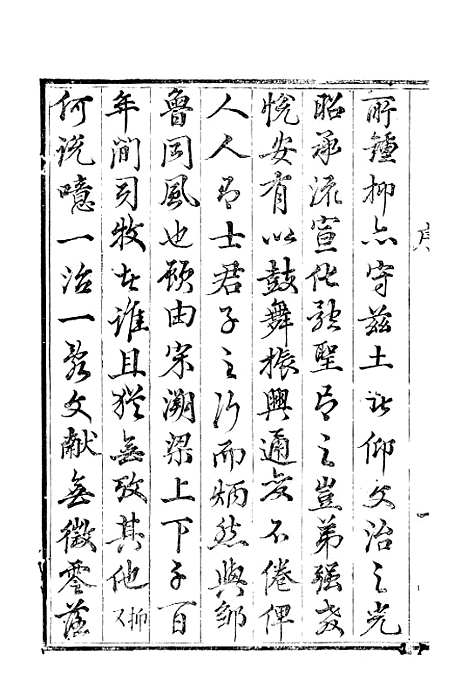 序
一
所鍾抑亦守茲土者仰文治之光
昭承流宣化歌聖君之豈弟强教
悅安有以鼓舞振興通變不倦俾
人人為士君子之行而炳然與鄒
魯同風也顧由宋溯梁上下千百
年間司牧者誰且猶無攷其他抑
又何說噫一治一亂文獻無徵零落